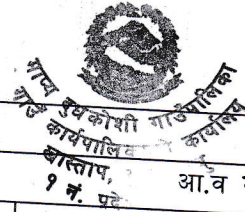 माप्य दुधकोशी गाउँपालिका
गाउँ कार्यपालिका कार्यालय
खास्ताप,
१ नं. प्रदे
आ.व